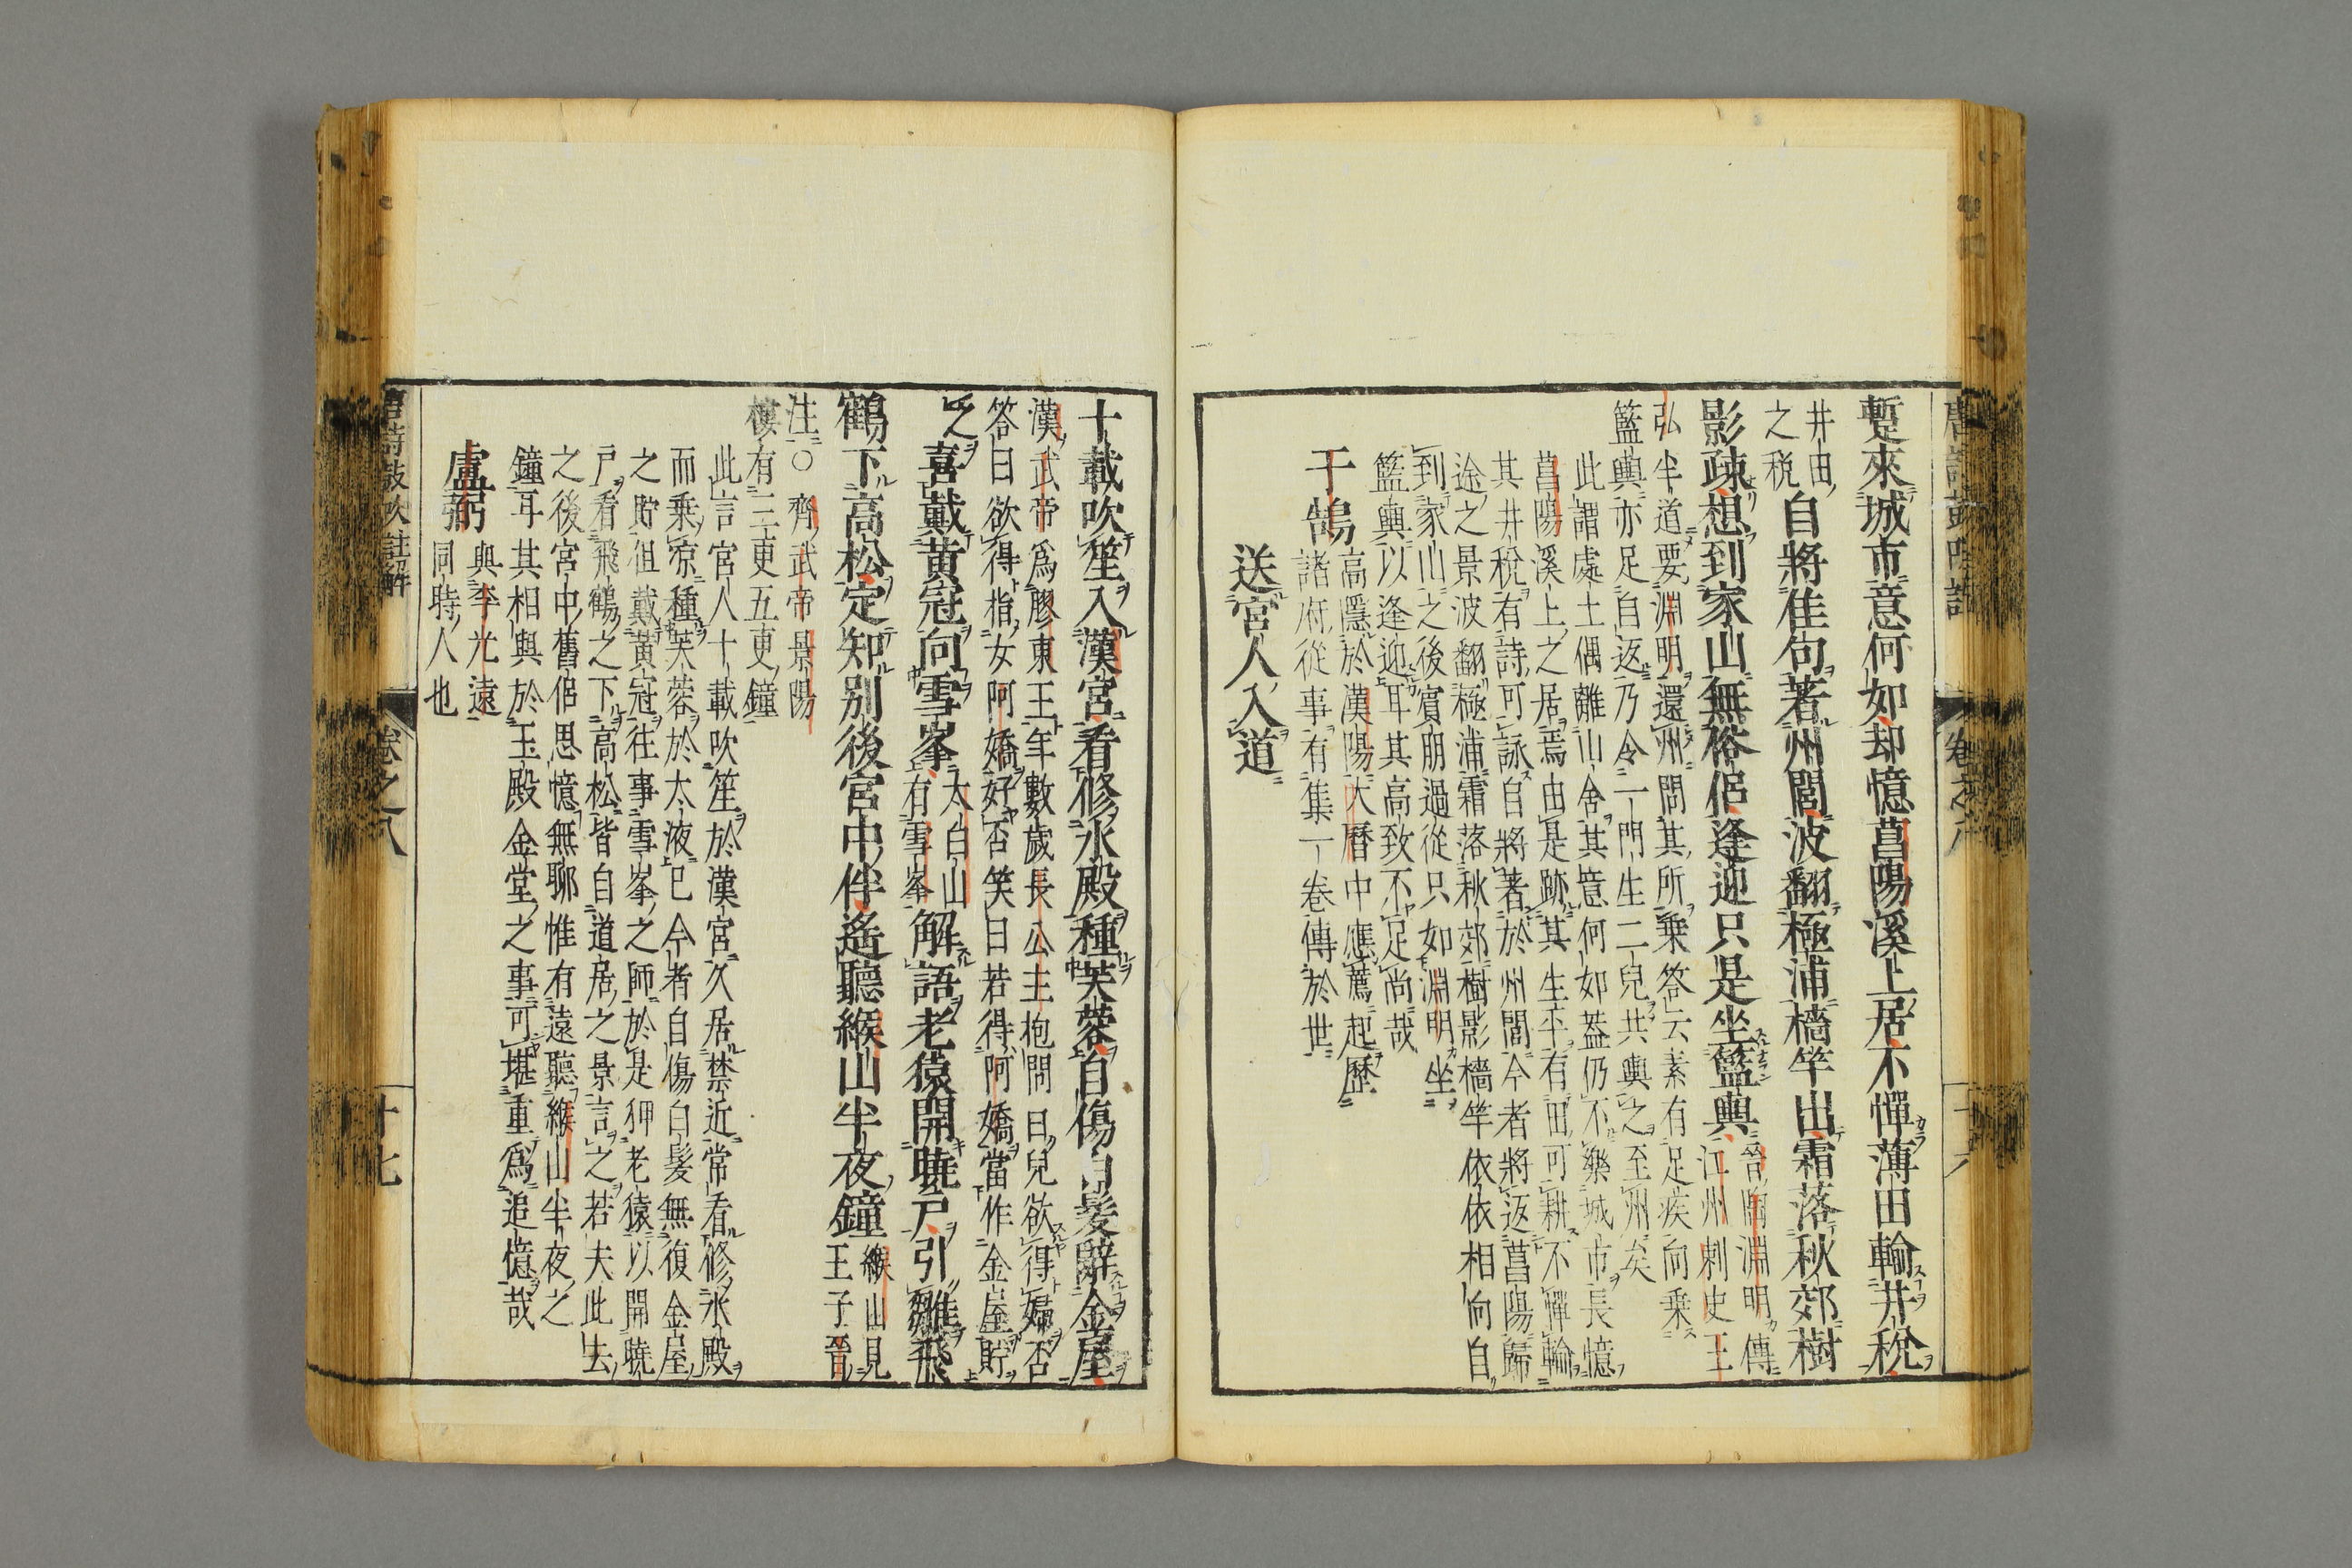 蹔來城市意何如却憶菖陽溪上居不憚薄田輸井稅
井田
之稅
自將佳句著州閭波翻極浦檣竿出霜落秋郊樹
影疎想到家山無俗侶逢迎只是坐籃輿
晉陶淵明傳
江州刺史王
弘半道要淵明還州問其所乗答云素有足疾向乗
籃輿亦足自返乃令一門生二兒共輿之至州矣
此謂處士偶離山舍其意何如葢仍不樂城市長憶
菖陽溪上之居焉由是跡其生平有田可耕不憚輸
其井稅有詩可詠自將著於州閭今者將返菖陽歸
途之景波翻極浦霜落秋郊樹影檣竿依依相向自
到家山之後賓朋過從只如淵明坐
籃輿以逢迎耳其高致不足尚哉
于鵠
高隱於漢陽大曆中應薦起歷
諸府從事有集一卷傳於世
送宮人入道
十載吹笙入漢宮看修氷殿種芙蓉自傷白髪辭金屋
漢武帝爲膠東王年數歲長公主抱問曰兒欲得婦否
答曰欲得指女阿嬌好否笑曰若得阿嬌當作金屋貯
之
喜戴黃冠向雪峯
太白山
有雪峯
解語老猿開曉戸引雛飛
鶴下高松定知別後宮中伴遙聽緱山半夜鐘
緱山見
王子晉
注○齊武帝景陽
樓有三更五更鐘
此言宮人十載吹笙於漢宮久居禁近常看修氷殿
而乗凉種芙蓉於太液已今者自傷白髪無復金屋
之貯但戴黃冠往事雪峯之師於是狎老猿以開曉
戸看飛鶴之下高松皆自道居之景言之若夫此去
之後宮中舊侶思憶無聊惟有遠聽緱山半夜之
鐘耳其相與於玉殿金堂之事可堪重爲追憶哉
盧弼
與李光遠
同時人也
唐詩鼓吹註解
卷之八
十七